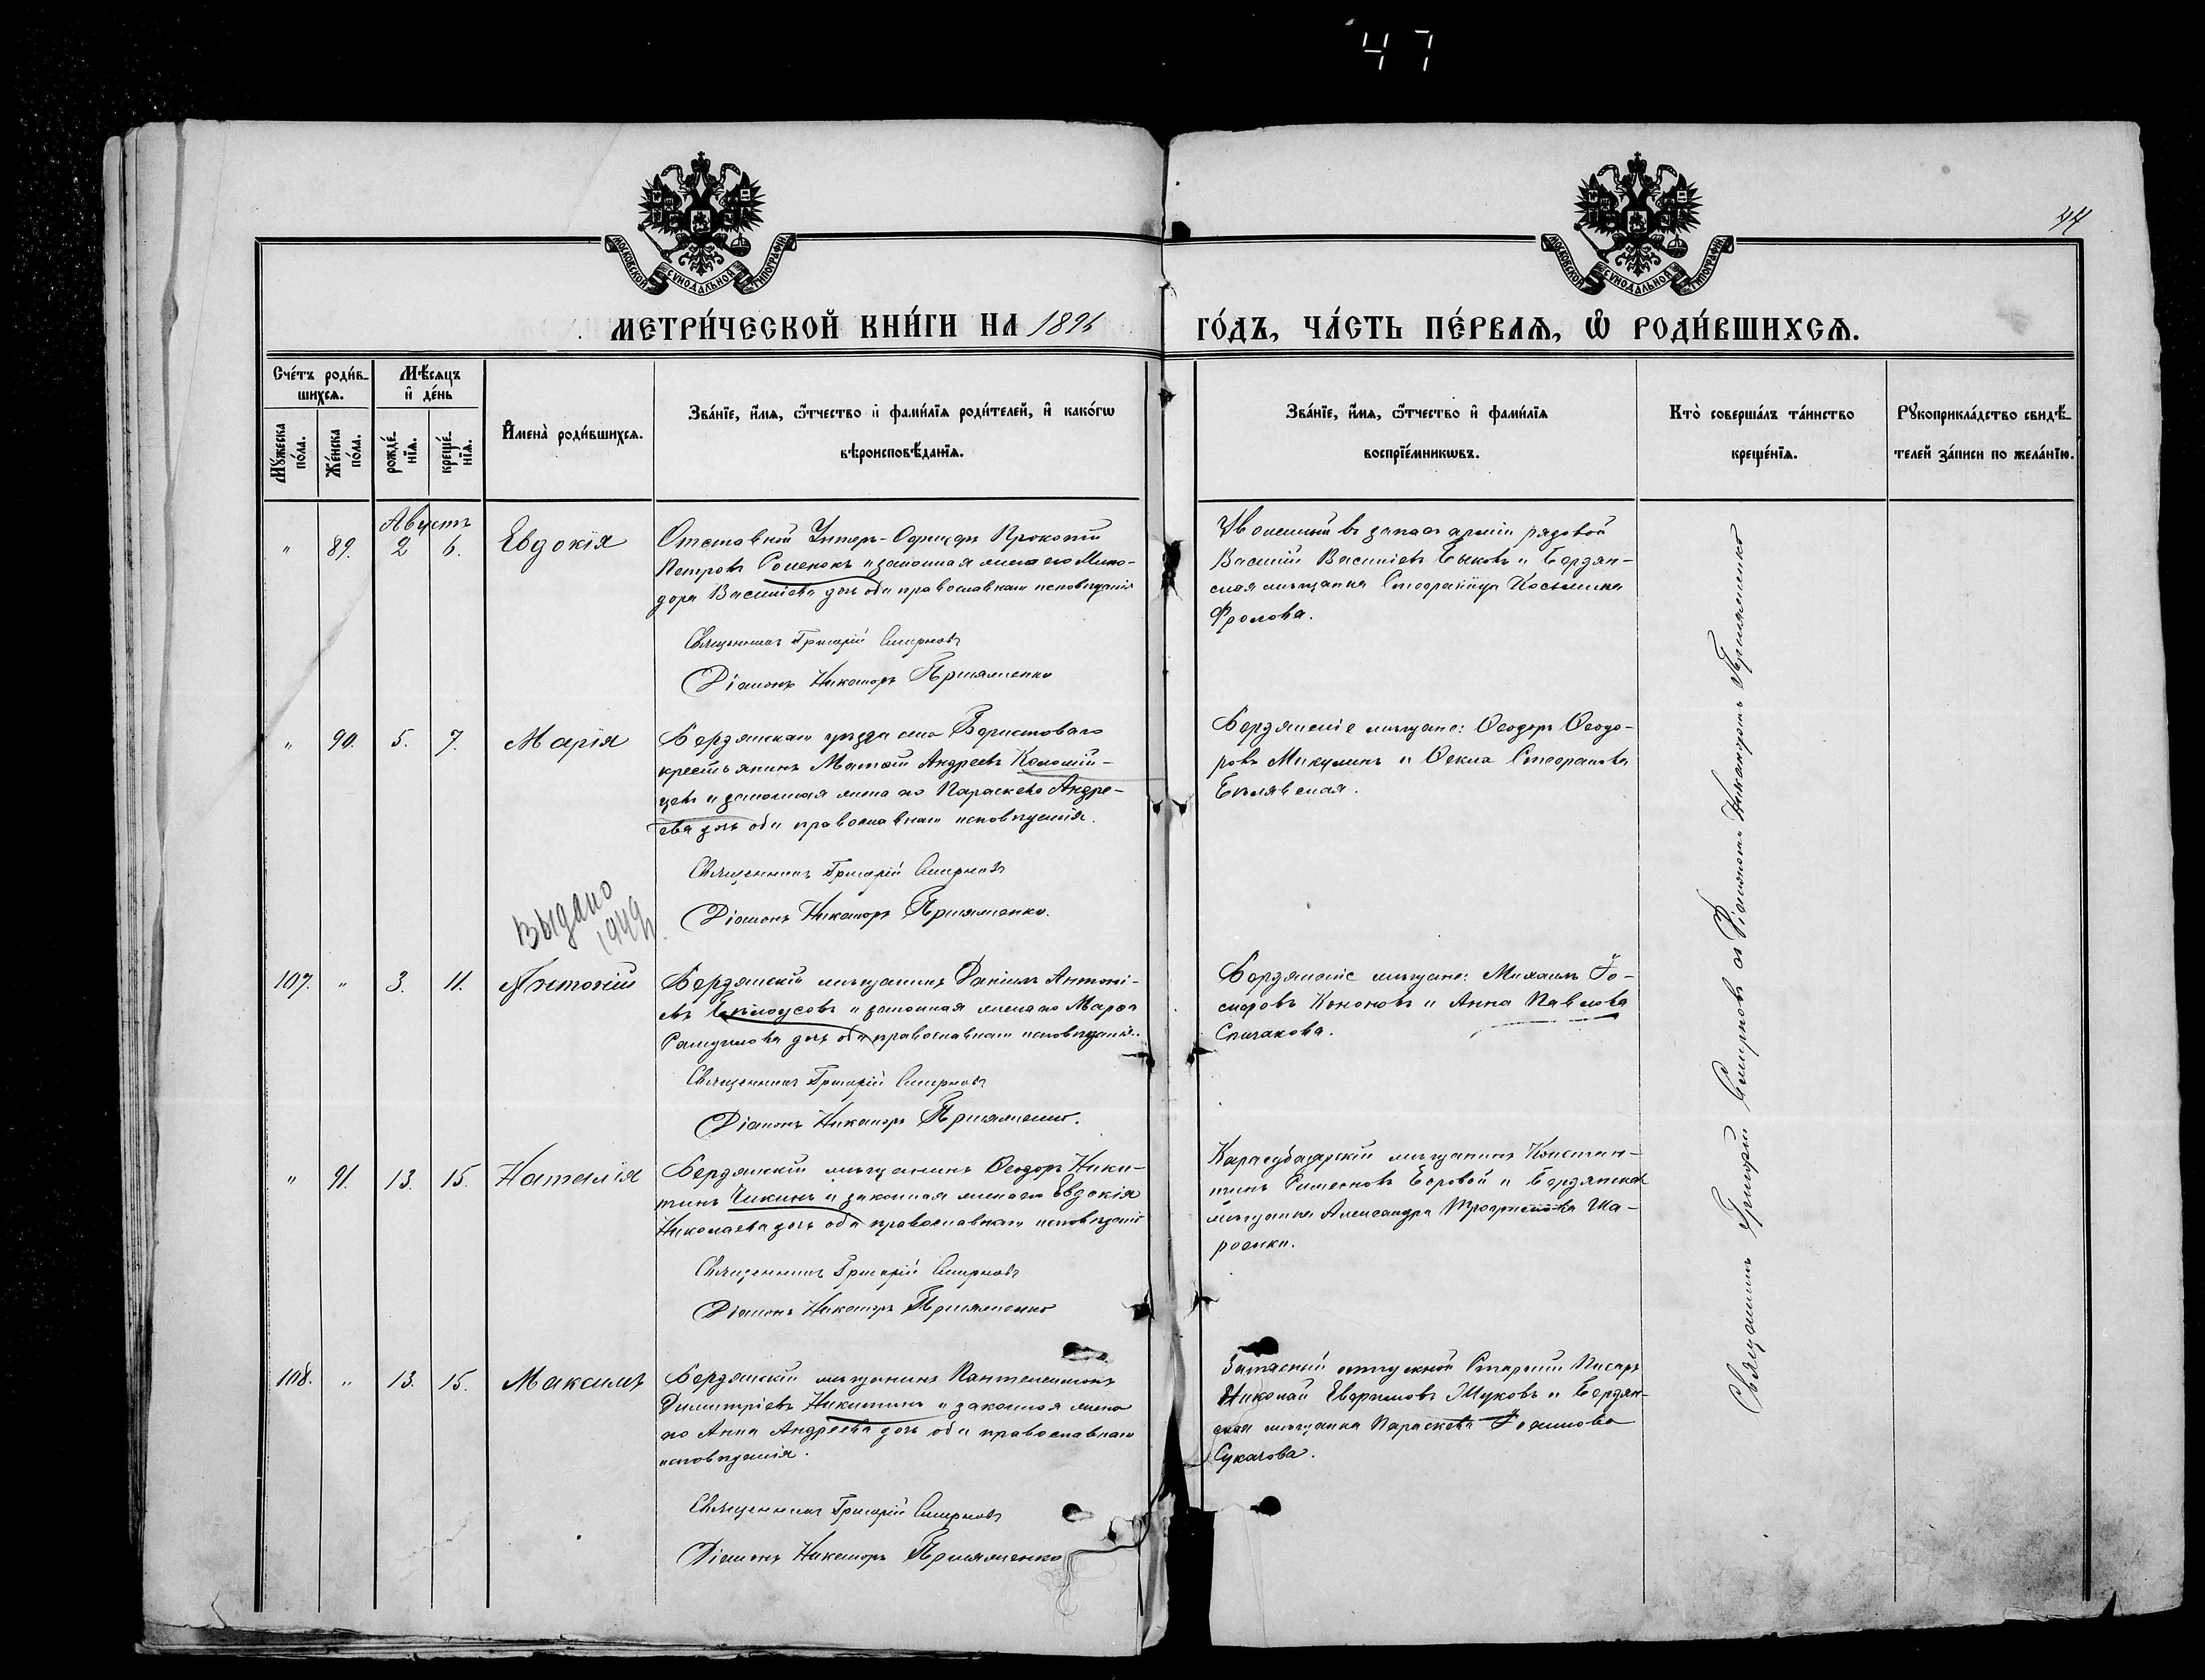 47
44
МОСКОВСКОЙ СѴНОДАЛЬНОЙ ТИПОГРАФІИ.
МОСКОВСКОЙ СѴНОДАЛЬНОЙ ТИПОГРАФІИ.
МЕТРИ́ЧЕСКОЙ КНИ́ГИ НА
ГО́ДЪ, ЧА́СТЬ ПЕ́РВАЯ, Ѽ РОДИ́ВШИХСѦ.
Сче́тъ роди́в-
шихсѧ.
Мѣ́сѧцъ
и҆ де́нь
Мꙋ́жеска
по́ла.
Же́нска
по́ла.
рожде́-
нїѧ.
креще́-
нїѧ.
И҆мена̀ роди́вшихсѧ.
Зва́нїе, и҆́мѧ, ѻ҆́тчество и҆ фами́лїѧ роди́телей, и҆ како́гѡ
вѣроисповѣ́данїѧ.
Зва́нїе, и҆́мѧ, ѻ҆́тчество и҆ фами́лїѧ
воспрїе́мникѡвъ.
Кто̀ соверша́лъ та́инство
креще́нїѧ.
Рꙋкоприкла́дство свидѣ́-
телей за́писи по жела́нїю.
Августъ
" 89. 2 6. Евдокія
Отставной Унтеръ-Офицеръ Прокопій
Петровъ Роменокъ и законная жена его Мино-
дора Васильева дочь оба православнаго исповѣданія
Священникъ Григорій Смирновъ
Діаконъ Никаноръ Пришляменко
Уволенный въ запасъ арміи рядовой
Василій Васильевъ Быковъ и Бердян-
ская мѣщанка Стефанида Косьмина
Фролова.
" 90. 5. 7. Марія
Бердянскаго уѣзда села Берестоваго
крестьянинъ Матѳій Андреевъ Коломій-
цевъ и законная жена его Параскева Андре-
ева дочь оба православнаго исповѣданія.
Священникъ Григорій Смирновъ
Діаконъ Никаноръ
Бердянскіе мѣщане: Ѳеодоръ Ѳеодо-
ровъ Микулинъ и Ѳекла Стефанова
Бѣлявская.
Выдано
1949
107. " 3. 11. Антоній
Бердянскій мѣщанинъ Даніилъ Антоні-
евъ Бѣлоусовъ и законная жена его Марѳа
дочь оба православнаго исповѣданія.
Священникъ Григорій Смирновъ
Діаконъ Никаноръ
Бердянскіе мѣщане: Михаилъ
Кононовъ и Анна Павлова
Спичакова.
" 91. 13. 15. Наталія
Бердянскій мѣщанинъ Ѳеодоръ Ники-
тинъ Чикинъ и законная жена его Евдокія
Николаева дочь оба православнаго исповѣданія
Священникъ Григорій Смирновъ
Діаконъ Никаноръ
Карасубазарскій мѣщанинъ Констан-
тинъ Симеоновъ Боровой и Бердянская
мѣщанка Александра Трофимова Ша-
роенки.
108. " 13. 15. Максимъ
Бердянскій мѣщанинъ Пантелеимонъ
Димитріевъ Никитинъ и законная жена
его Анна Андреева дочь оба православнаго
исповѣданія.
Священникъ Григорій Смирновъ
Діаконъ Никаноръ
отпускной Старшій Писарь
Николай Евфимовъ Жуковъ и Бердян-
ская мѣщанка Параскева
Сукачова.
Священникъ Григорій Смирновъ съ Діакономъ Никаноромъ